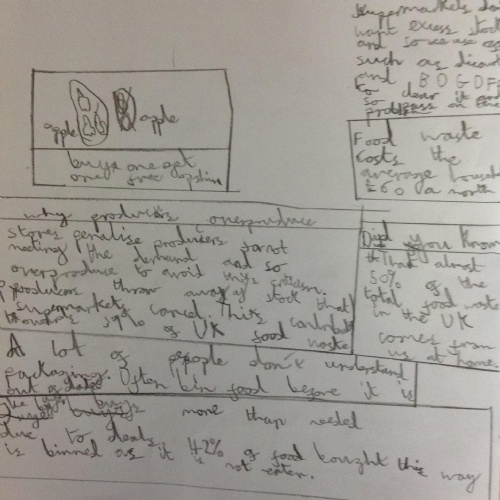 Supermarkets don
want excess stock
and so use
such as discount
and BOGOFs
to clear it and
so
problems on
apple
apple
buys one get
one free
Food waste
costs the
average househol
£60 a month
why producers overproduce
stores penalise producers for not
meeting the demand and so
overproduce to avoid this
producers throw away stock that
supermarkets cancel. This contribut
towards 39% of UK food waste
Did you know
that almost
50% of the
total food waste
in the UK
comes from
us at home.
A lot of people don't understand
packaging. Often bin food before it is
buys more than needed
due to deals. 42% of food bought this way
is binned as it is not eaten.